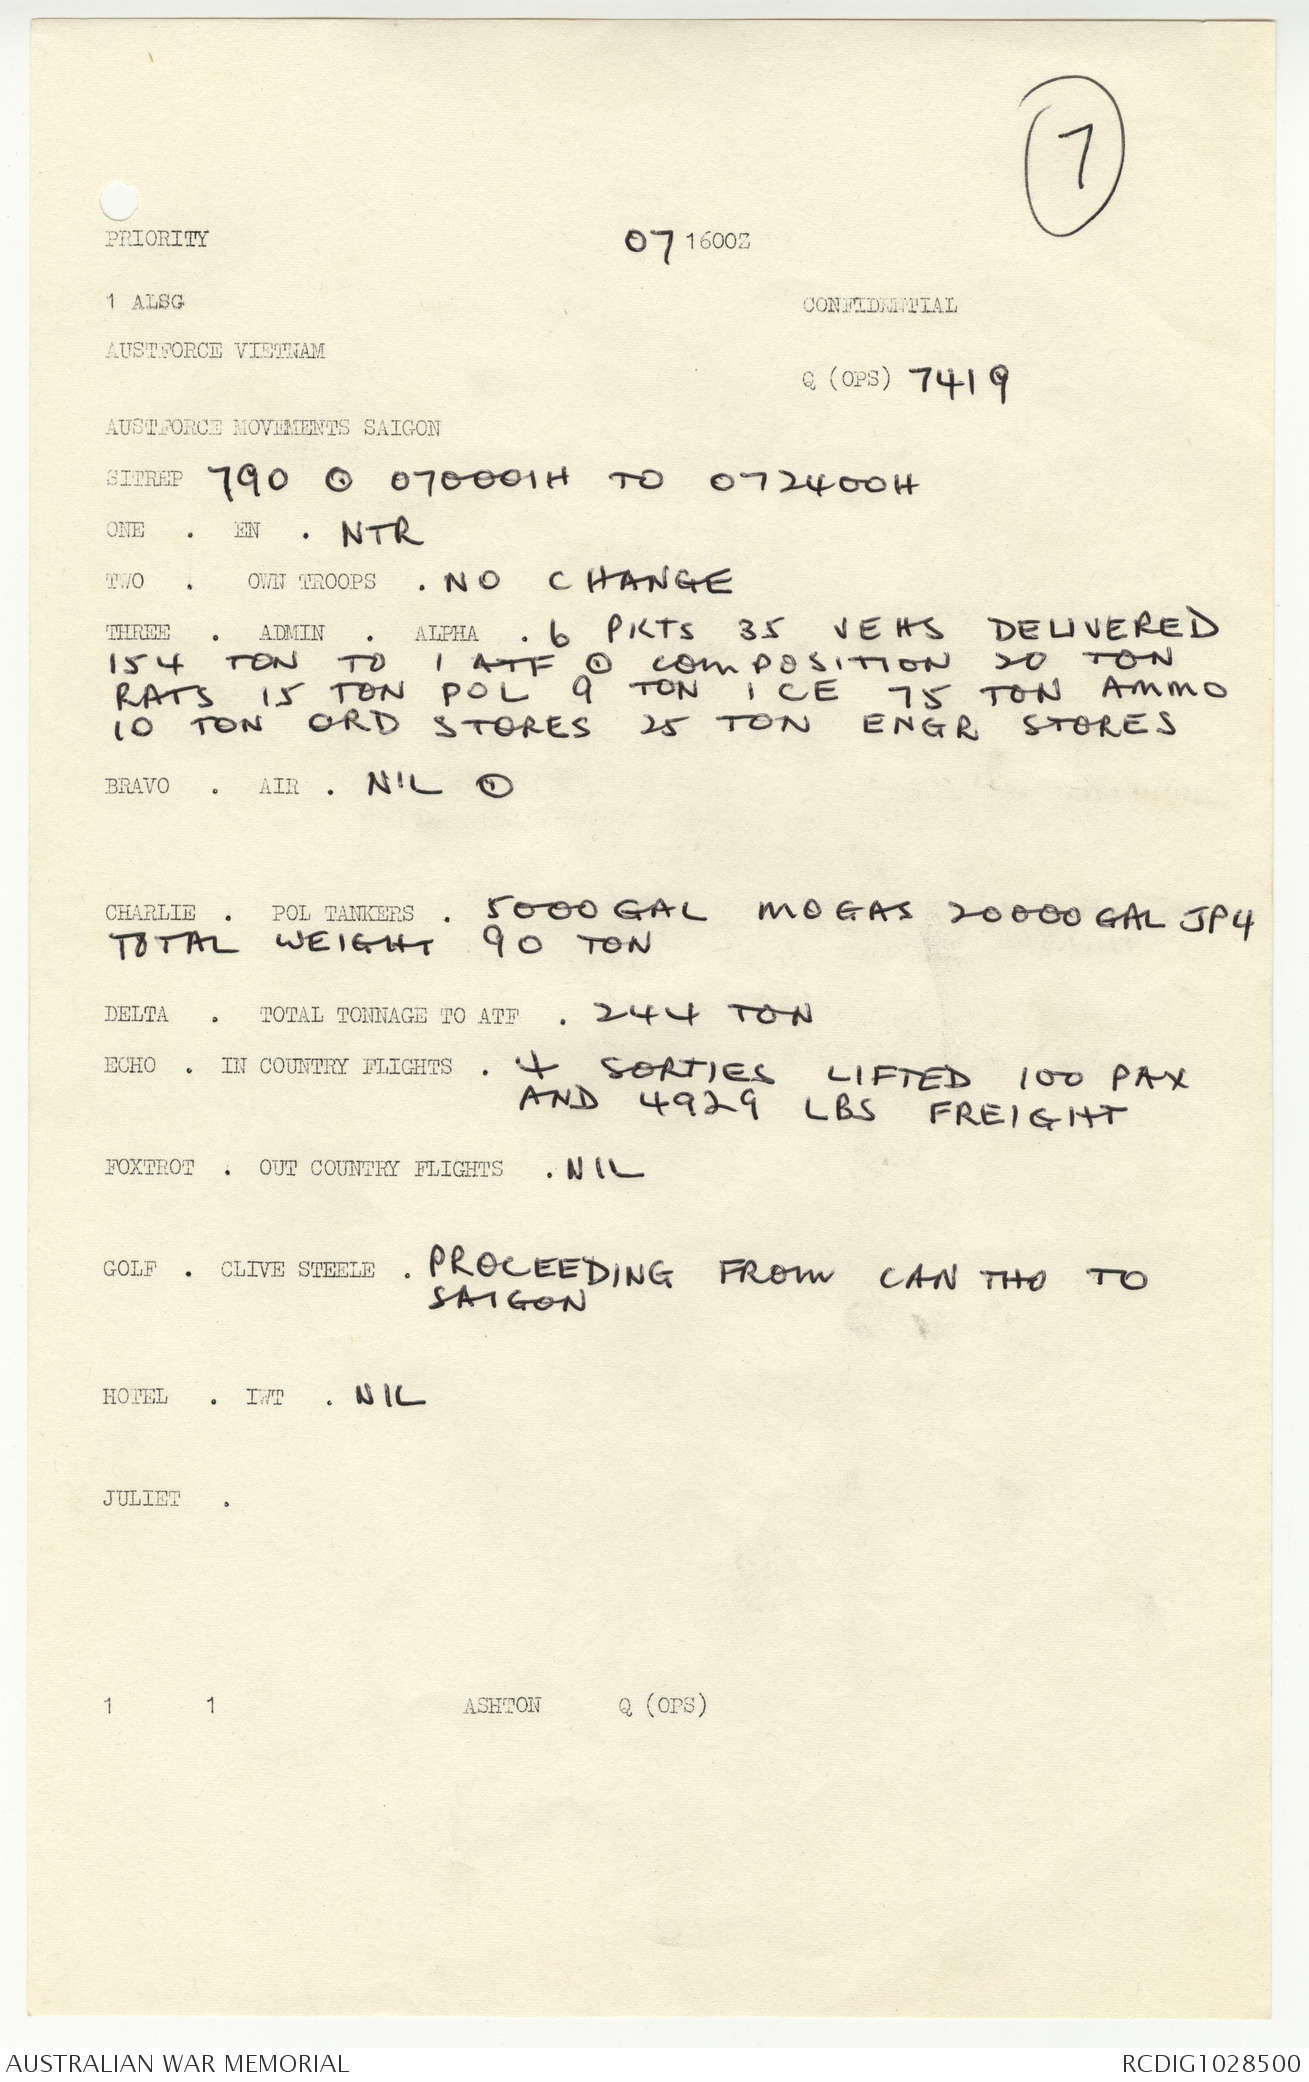 7
PRIORITY 07 1600Z
1 ALSG CONFIDENTIAL
AUSTFORCE VIETNAM
Q (OPS) 7419
AUSTFORCE MOVEMENTS SAIGON
SITREP 790 ⊙ 070001H TO 072400H
ONE . EN . NTR
TWO . OWN TROOPS . NO CHANGE
THREE . ADMIN . ALPHA . 6 PKTS 35 VEHS DELIVERED
154 TON TO 1 ATF ⊙ COMPOSITION 20 TON
RATS 15 TON POL 9 TON ICE 75 TON AMMO
10 TON ORD STORES 25 TON ENGR STORES
BRAVO . AIR . NIL ⊙
CHARLIE . POL TANKERS . 5000 GAL MOGAS 20000 GAL JP4
TOTAL WEIGHT 90 TON
DELTA . TOTAL TONNAGE TO ATF . 244 TON
ECHO . IN COUNTRY FLIGHTS . 4 SORTIES LIFTED 100 PAX
AND 4929 LBS FREIGHT
FOXTROT . OUT COUNTRY FLIGHTS . NIL
GOLF . CLIVE STEELE . PROCEEDING FROM CAN THO TO
SAIGON
HOTEL . IWT . NIL
JULIET .
1 1 ASHTON Q (OPS)
AUSTRALIAN WAR MEMORIAL RCDIG1028500